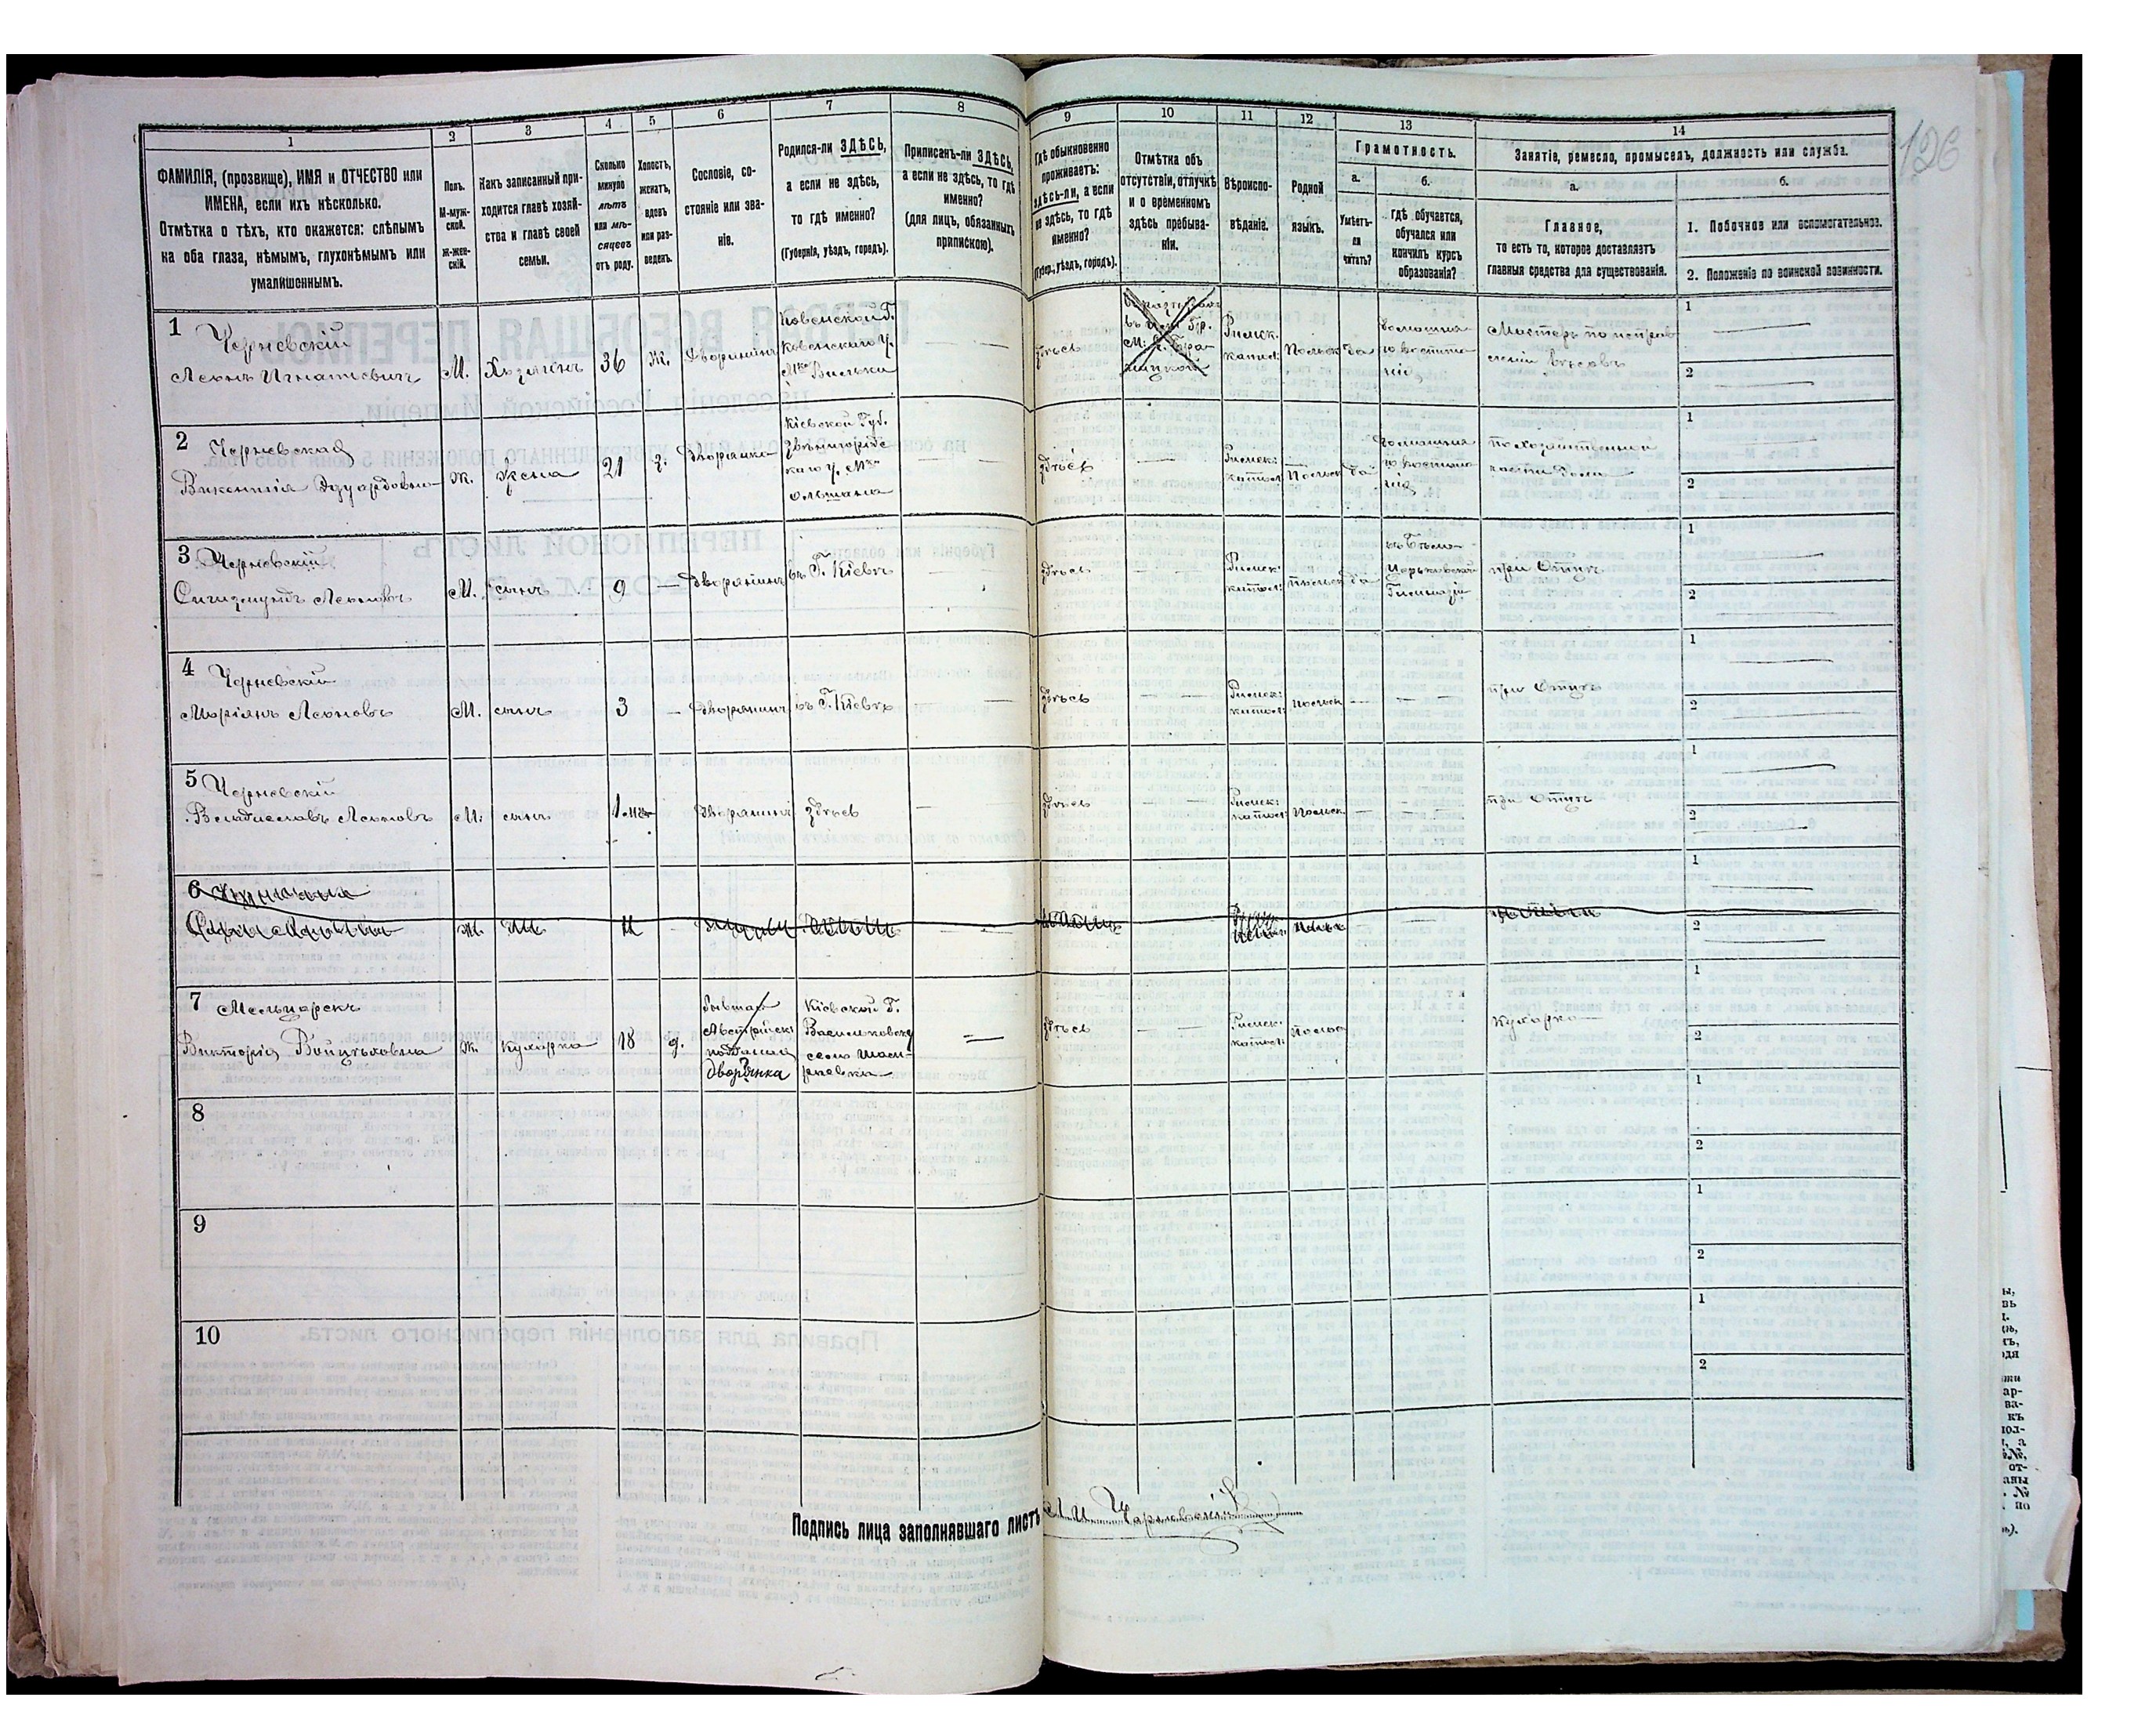 126
1 2 3 4 5 6 7 8 9 10 11 12 13 14
ФАМИЛІЯ, (прозвище), ИМЯ и ОТЧЕСТВО или
ИМЕНА, если ихъ нѣсколько.
Отмѣтка о тѣхъ, кто окажется: слѣпымъ
на оба глаза, нѣмымъ, глухонѣмымъ или
умалишеннымъ.
Полъ.
М-муж-
ской.
Ж-жен-
скій.
Какъ записанный при-
ходится главѣ хозяй-
ства и главѣ своей
семьи.
Сколько
минуло
лѣтъ
или мѣ-
сяцевъ
отъ роду.
Холостъ,
женатъ,
вдовъ
или раз-
веденъ.
Сословіе, со-
стояніе или зва-
ніе.
Родился-ли ЗДѢСЬ,
а если не здѣсь,
то гдѣ именно?
(Губернія, уѣздъ, городъ).
Приписанъ-ли ЗДѢСЬ,
а если не здѣсь, то гдѣ
именно?
(для лицъ, обязанныхъ
припискою).
Гдѣ обыкновенно
проживаетъ:
здѣсь-ли, а если
не здѣсь, то гдѣ
именно?
(Губер., уѣздъ, городъ).
Отмѣтка объ
отсутствіи, отлучкѣ
и о временномъ
здѣсь пребыва-
ніи.
Вѣроиспо-
вѣданіе.
Родной
языкъ.
Грамотность.
а.
Умѣетъ-
ли
читать?
б.
гдѣ обучается,
обучался или
кончилъ курсъ
образованія?
Занятіе, ремесло, промыселъ, должность или служба.
а.
Главное,
то есть то, которое доставляетъ
главныя средства для существованія.
б.
1. Побочное или вспомогательное.
2. Положеніе по воинской повинности.
1 Черневскій
Леонъ Игнатіевичъ
М. Хозяинъ 36 Ж. Дворянинъ
Ковенской Г.
Ковенскаго у.
Мко Вилька
здѣсь
Римск.
катол:
Польск да
домашня-
го воспита-
нія
Мастеръ по исправ
ленію вѣсовъ
1
2
2 Черневская
Викентія Эдуардовна
Ж. жена 21 з. Дворянка
Кіевской Губ.
Звѣнигородс
каго у. Мко
Ольшана
здѣсь
Римск:
катол:
Польск да
домашня
го воспита
нія
по хозяйственной
части дома
1
2
3 Черневскій
Сигизмундъ Леоновъ
М. сынъ 9 — Дворянинъ въ Г. Кіевѣ
здѣсь
Римск:
катол:
Польск да
въ Бѣло-
Церковской
Гимназіи
при Отцѣ
1
2
4 Черневскій
Маріанъ Леоновъ
М. сынъ 3 — Дворянинъ въ Г. Кіевѣ
здѣсь
Римск:
катол:
Польск
при Отцѣ
1
2
5 Черневскій
Владиславъ Леоновъ
М. сынъ 1 мѣс Дворянинъ здѣсь
здѣсь
Римск:
катол:
Польск
при Отцѣ
1
2
6
Ж.
1
2
7 Мельцарекъ
Викторія Войцѣховна
Ж. кухарка 18 д.
бывшая
Австрійск:
подданая
дворянка
Кіевской Г.
Васильковскаго
село
здѣсь
Римск.
катол:
Польс
Кухарка
1
2
8
1
2
9
1
2
10
1
2
Подпись лица заполнявшаго листъ Л. И. Черневскій